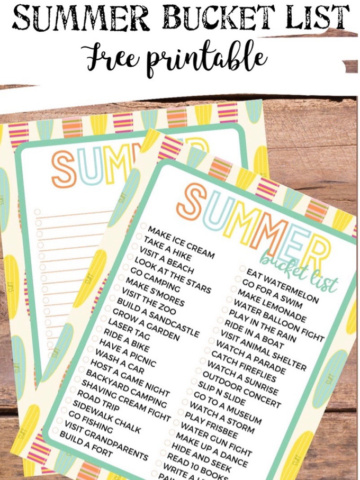 SUMMER BUCKET LIST
Free printable
SUMMER
SUMMER
bucket list
MAKE ICE CREAM
TAKE A HIKE
VISIT A BEACH
LOOK AT THE STARS
GO CAMPING
MAKE S'MORES
VISIT THE ZOO
BUILD A SANDCASTLE
GROW A GARDEN
LASER TAG
RIDE A BIKE
HAVE A PICNIC
WASH A CAR
HOST A GAME NIGHT
BACKYARD CAMPING
SHAVING CREAM FIGHT
ROAD TRIP
SIDEWALK CHALK
GO FISHING
VISIT GRANDPARENTS
BUILD A FORT
EAT WATERMELON
GO FOR A SWIM
MAKE LEMONADE
WATER BALLOON FIGHT
PLAY IN THE RAIN
RIDE IN A BOAT
VISIT ANIMAL SHELTER
WATCH A PARADE
CATCH FIREFLIES
WATCH A SUNRISE
OUTDOOR CONCERT
SLIP N SLIDE
GO TO A MUSEUM
WATCH A STORM
PLAY FRISBEE
WATER GUN FIGHT
MAKE UP A DANCE
HIDE AND SEEK
READ 10 BOOKS
WRITE A